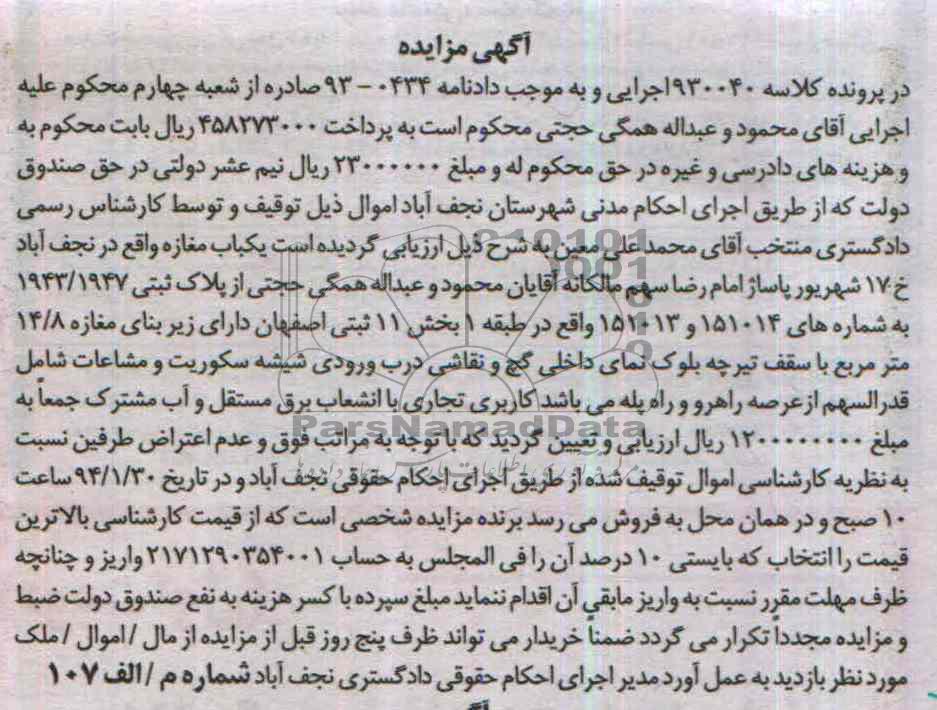 آگهی مزایده
در پرونده کلاسه ۹۳۰۰۴۰ اجرایی و به موجب دادنامه ۰۴۳۴ - ۹۳ صادره از شعبه چهارم محکوم علیه
اجرایی آقای محمود و عبداله همگی حجتی محکوم است به پرداخت ۴۵۸۲۷۳۰۰۰ ریال بابت محکوم به
و هزینه های دادرسی و غیره در حق محکوم له و مبلغ ۲۳۰۰۰۰۰۰ ریال نیم عشر دولتی در حق صندوق
دولت که از طریق اجرای احکام مدنی شهرستان نجف آباد اموال ذیل توقیف و توسط کارشناس رسمی
دادگستری منتخب آقای محمد علی معین به شرح ذیل ارزیابی گردیده است یکباب مغازه واقع در نجف آباد
خ ۱۷ شهریور پاساژ امام رضا سهم مالکانه آقایان محمود و عبداله همگی حجتی از پلاک ثبتی ۱۹۴۳/۱۹۴۷
به شماره های ۱۵۱۰۱۴ و ۱۵۱۰۱۳ واقع در طبقه ۱ بخش ۱۱ ثبتی اصفهان دارای زیر بنای مغازه ۱۴/۸
متر مربع با سقف تیرچه بلوک نمای داخلی گچ و نقاشی درب ورودی شیشه سکوریت و مشاعات شامل
قدرالسهم از عرصه راهرو و راه پله می باشد کاربری تجاری با انشعاب برق مستقل و آب مشترک جمعاً به
مبلغ ۱۲۰۰۰۰۰۰۰۰ ریال ارزیابی و تعیین گردید که با توجه به مراتب فوق و عدم اعتراض طرفین نسبت
به نظریه کارشناسی اموال توقیف شده از طریق اجرای احکام حقوقی نجف آباد و در تاریخ ۹۴/۱/۳۰ ساعت
۱۰ صبح و در همان محل به فروش می رسد برنده مزایده شخصی است که از قیمت کارشناسی بالاترین
قیمت را انتخاب که بایستی ۱۰ درصد آن را فی المجلس به حساب ۲۱۷۱۲۹۰۳۵۴۰۰۱ واریز و چنانچه
ظرف مهلت مقرر نسبت به واریز مابقی آن اقدام ننماید مبلغ سپرده با کسر هزینه به نفع صندوق دولت ضبط
و مزایده مجدداً تکرار می گردد ضمناً خریدار می تواند ظرف پنج روز قبل از مزایده از مال / اموال / ملک
مورد نظر بازدید به عمل آورد مدیر اجرای احکام حقوقی دادگستری نجف آباد شماره م / الف ۱۰۷
ParsNamadData